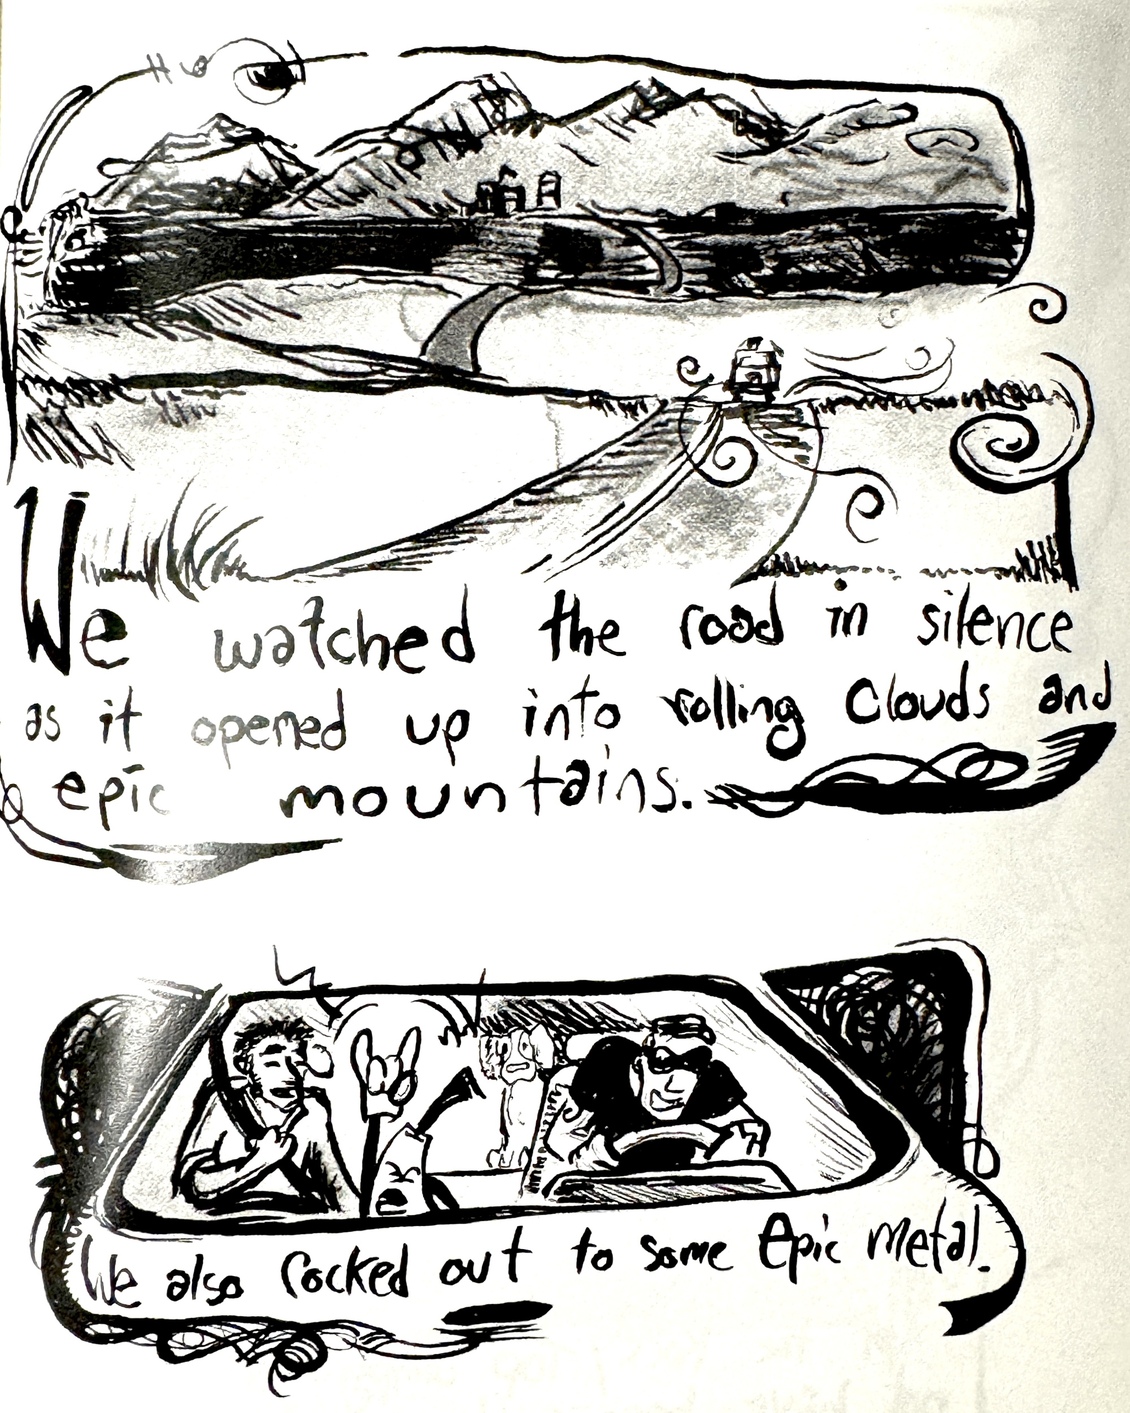 We watched the road in silence
as it opened up into rolling clouds and
epic mountains.
We also rocked out to some epic metal.